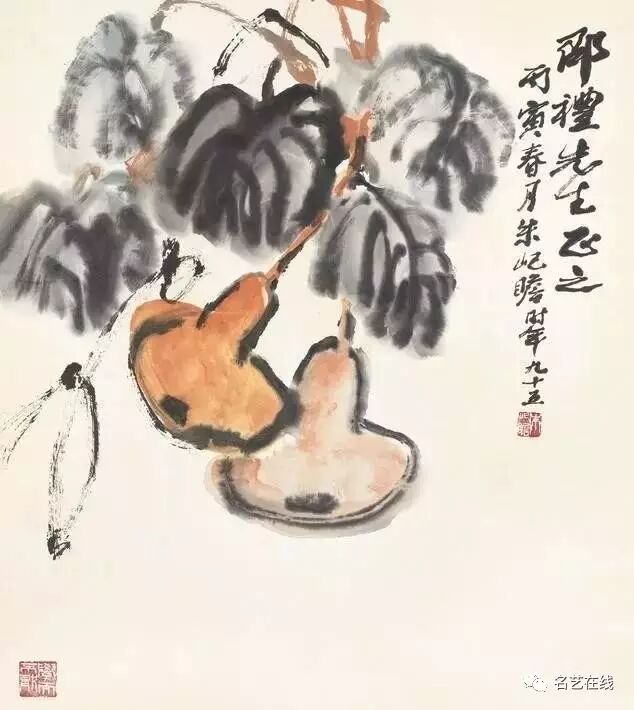 邵禮先生正之
丙寅春月朱屺瞻时年九十五
名艺在线